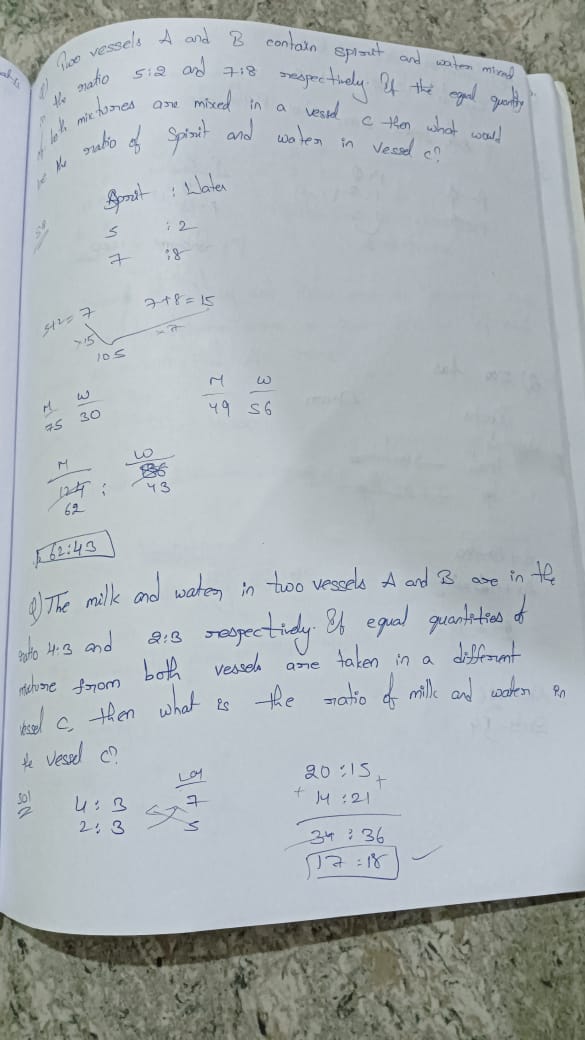 Q) Two vessels A and B contain spirit and water mixed
in the ratio 5:2 and 7:8 respectively. If the equal quantity
of both mixtures are mixed in a vessel C then what would
be the ratio of Spirit and water in vessel C?
Sol
Sprit : Water
5 : 2
7 : 8
5+2= 7 7+8=15
×15 ×7
105
M W M W
75 30 49 56
M W
124 : 86
62 43
62:43
Q) The milk and water in two vessels A and B are in the
ratio 4:3 and 2:3 respectively. If equal quantities of
mixture from both vessels are taken in a different
vessel C, then what is the ratio of milk and water in
the vessel C?
Sol
4 : 3 7
2 : 3 5
20 : 15 +
+ 14 : 21
34 : 36
17 : 18